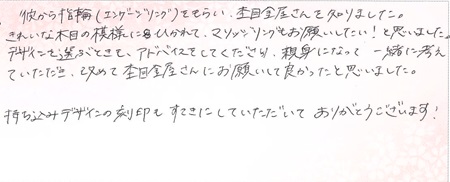 彼から指輪(エンゲージリング)をもらい、杢目金屋さんを知りました。
きれいな木目の模様にひかれて、マリッジリングもお願いしたい!と思いました。
デザインを選ぶときも、アドバイスをしてくださり、親身になって一緒に考え
ていただき、改めて杢目金屋さんにお願いして良かったと思いました。
持ち込みデザインの刻印もすてきにしていただいてありがとうございます!